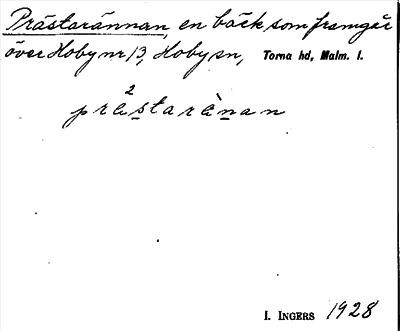 Prästarännan, en bäck som framgår
över Hoby nr 13, Hoby sn, Torna hd, Malm. l.
2
præstarænan
I. INGERS 1928